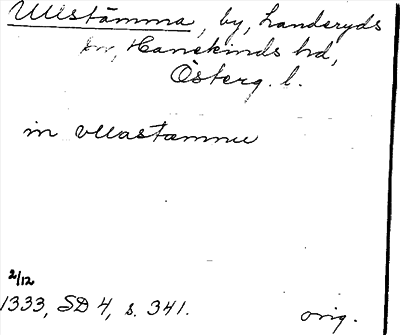 Ullstämma, by, Landeryds
sn, Hanekinds hd,
Österg. l.
in vllastæmmu
2/12
1333, SD 4, s. 341.
orig.